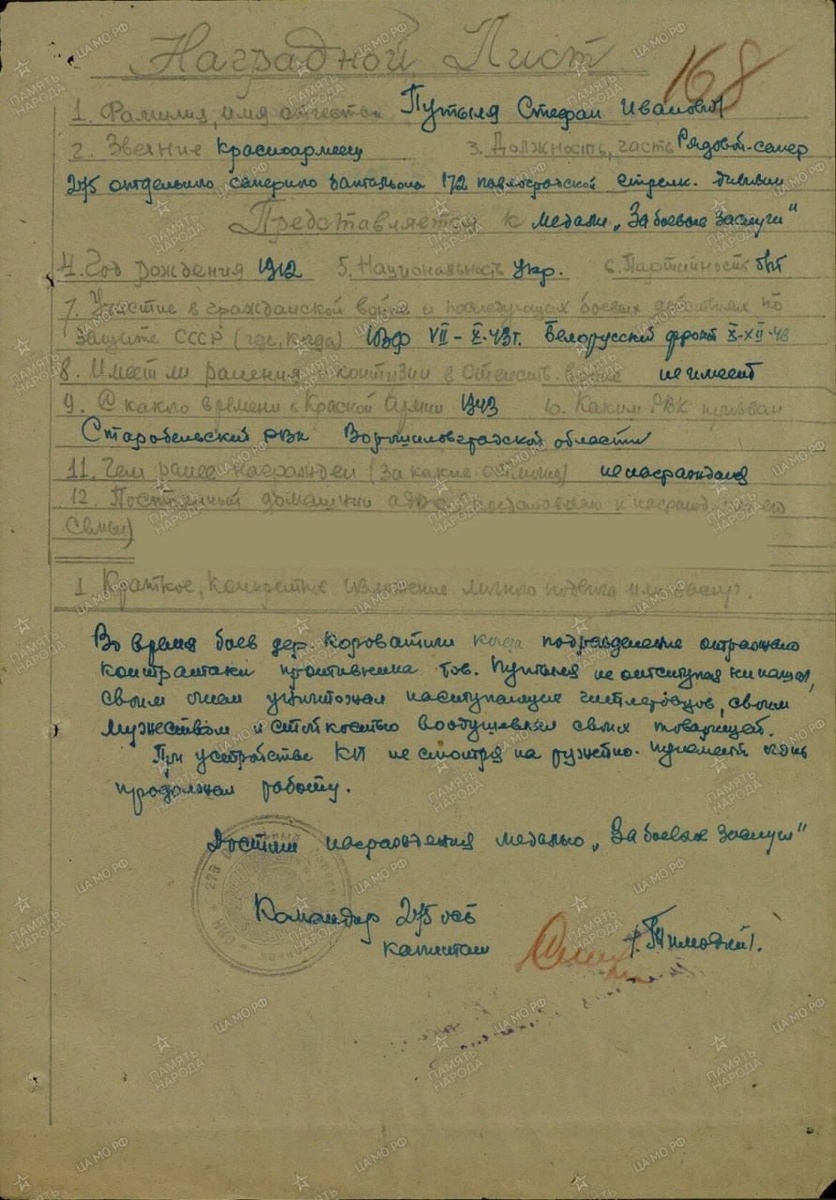 Наградной Лист
168
1. Фамилия, имя отчество Путыля Стефан Иванович
2. Звение Красноармеец 3. Должность, часть Рядовой-сапер
275 отдельного саперного баттальона 172 павлоградской стрелк. дивизии
Представляется к медали „За боевые заслуги"
4. Год рождения 1912 5. Национальность укр. 6. Партийность бп
7. Участие в гражданской войне и последующих боевых действиях по
защите СССР (где, когда) ЮЗФ VII – X-43г. Белорусский фронт X-XII-43
8. Имеет ли ранения и контузии в отечеств. войне не имеет
9. С какого времени в Красной Армии 1943 10. Каким РВК призван
Старобельский РВК Ворошиловградской области
11. Чем ранее награжден (за какие отличия) не награждался
12. Постоянный домашний адрес представляемого к награжд. и его
семьи)
1 Краткое, конкретное изложение личного подвига или заслуг.
Во время боев дер. Короватичи когда подразделение отражало
контратаки противника тов. Путыля не отступая ни шагу,
своим огнем уничтожал наступающих гитлеровцев, своим
мужеством и стойкостью воодушевлял своих товарищей.
При устройстве КП не смотря на ружейно. пулеметн огонь
продолжал работу.
Достоин награждения медалью „За боевые заслуги"
Командир 275 осб
капитан
ПАМЯТЬ НАРОДА
ЦАМО.РФ